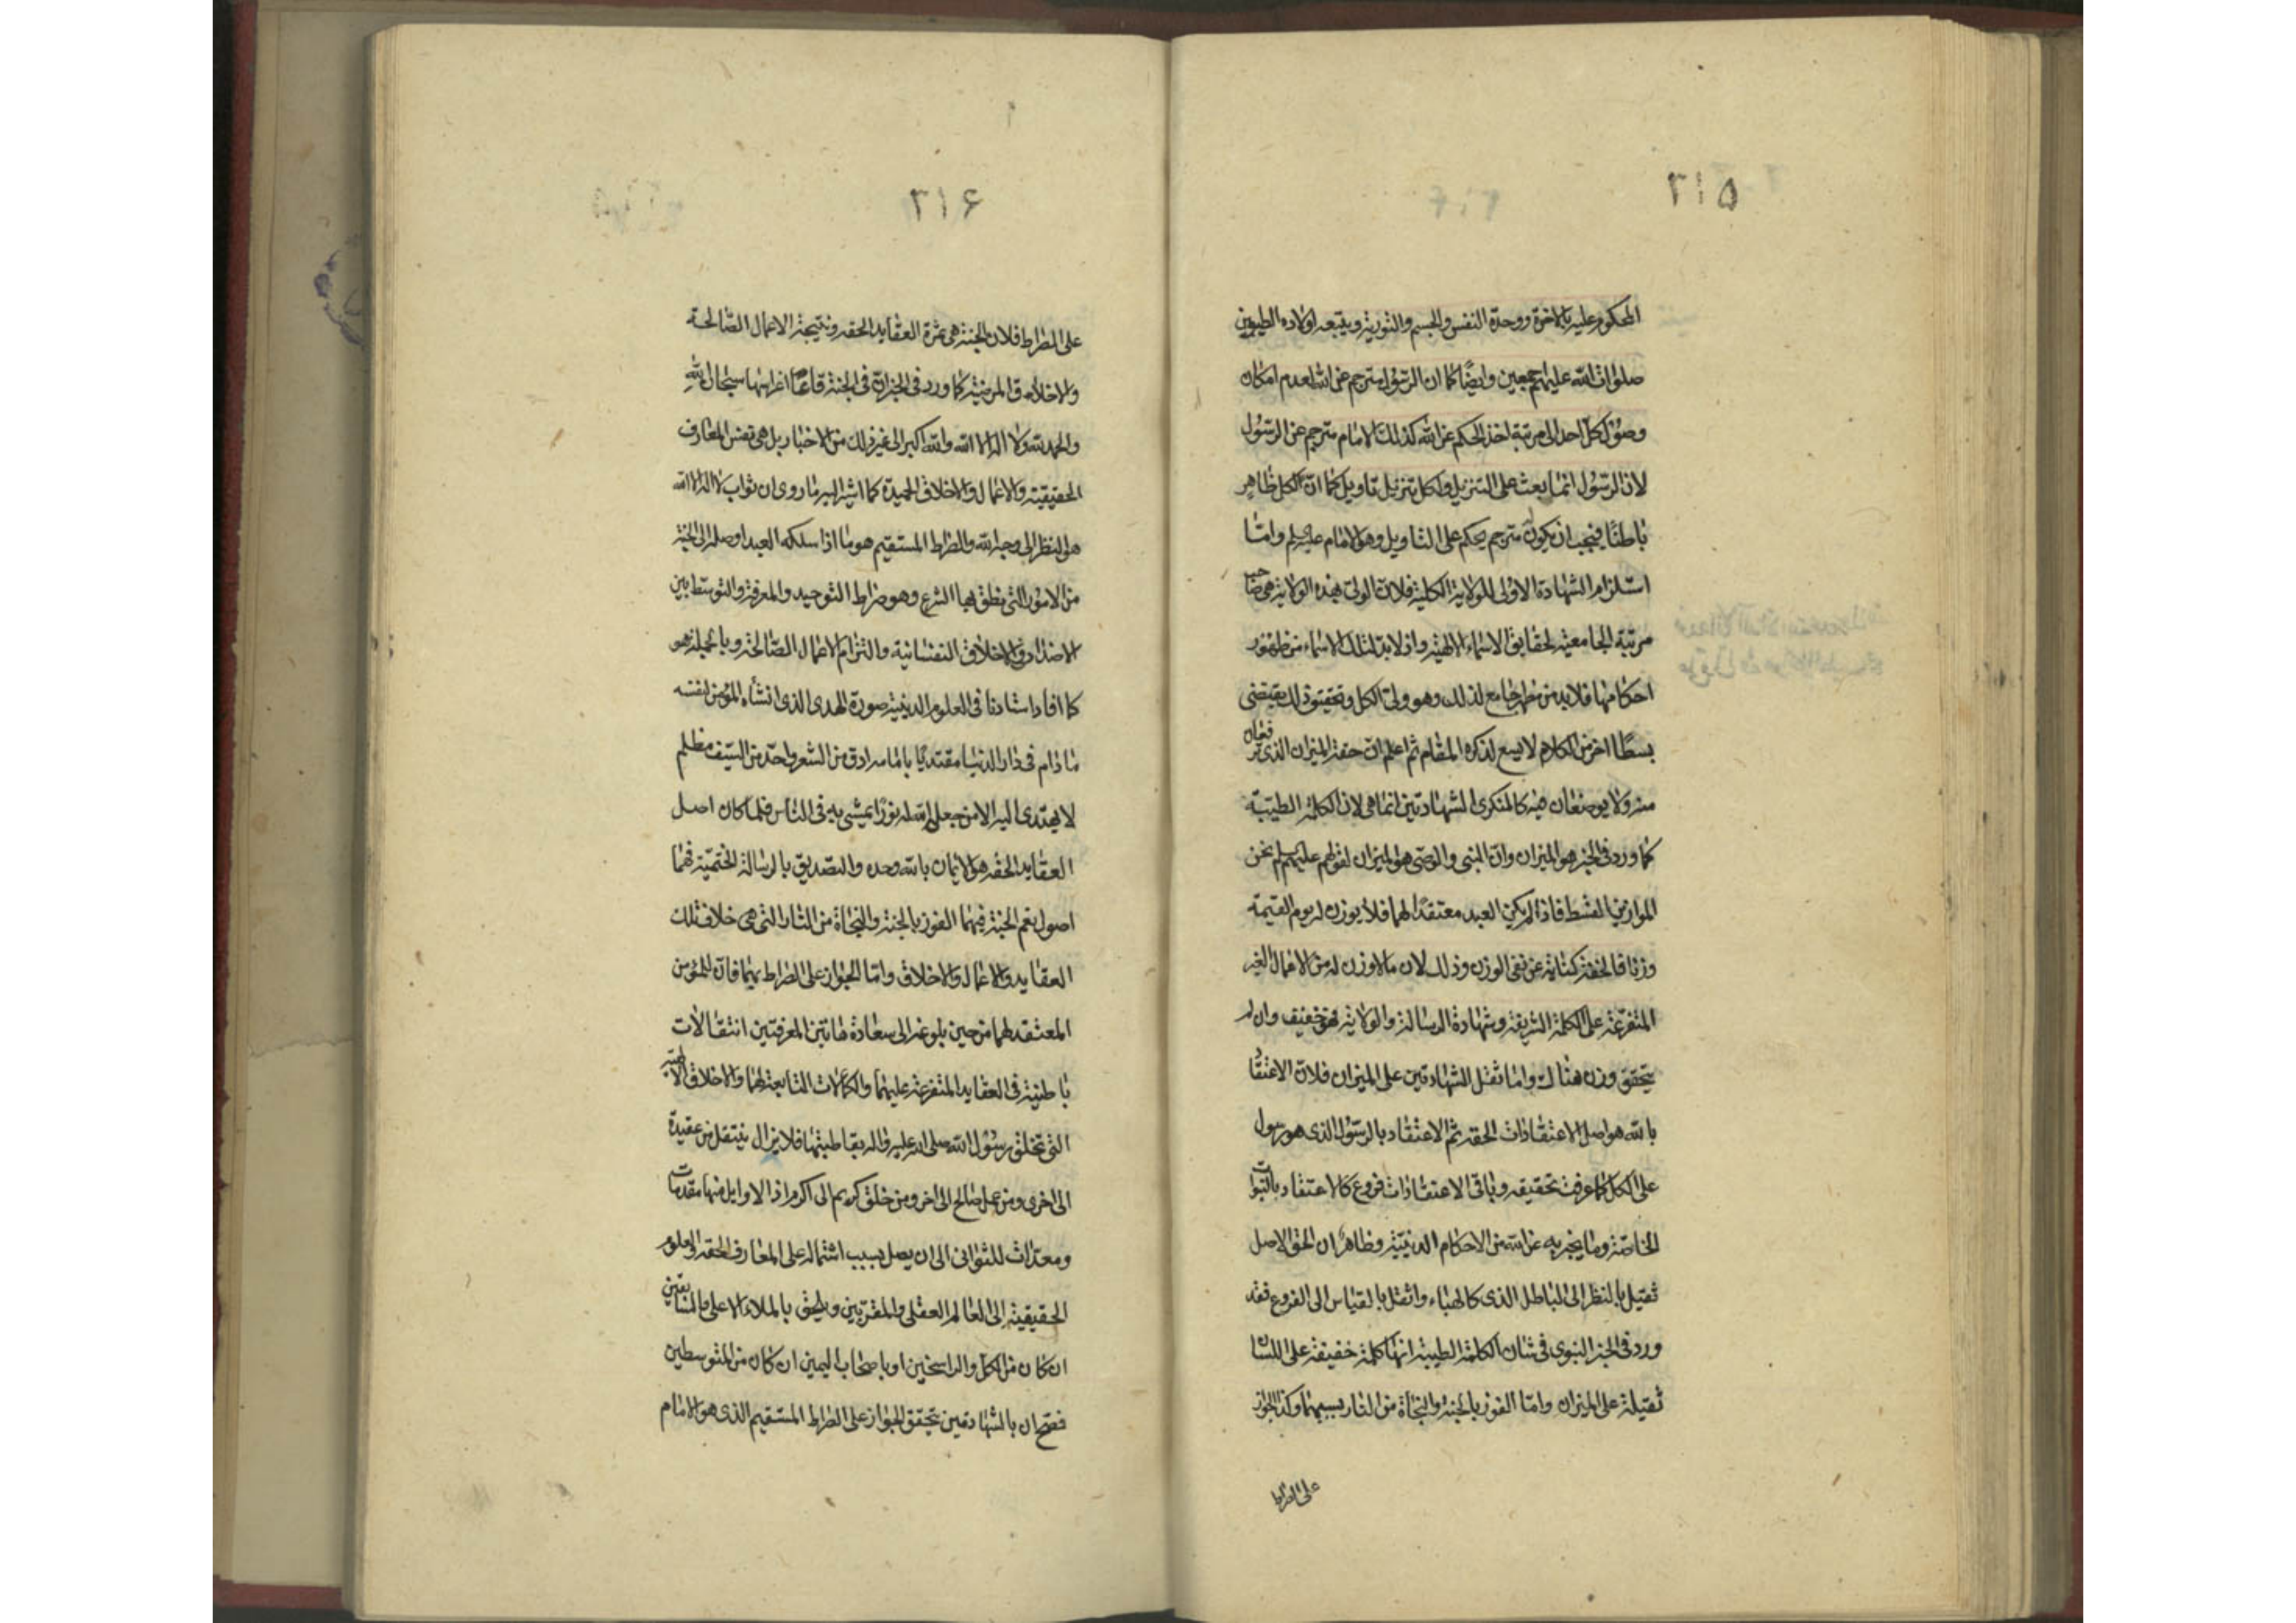 ۳۱۵
المحكوم عليه بالاخرة ووحدة النفس والجسم والنورية ويتبعه اولاده الطيبين
صلوات الله عليهم اجمعين وايضًا كما ان الرسول مترجم عن الله لعدم امكان
وصول كل احد الى مرتبة اخذ الحكم عن الله كذلك الامام مترجم عن الرسول
لان الرسول انما بعث على التنزيل ولكل تنزيل تاويل كما ان لكل ظاهر
باطنًا فيجب ان يكون مترجم يحكم على التاويل وهو الامام عليه السلم واما
استلزام الشهادة الاولى للولاية الكلية فلان الولى بهذه الولاية هى صاحب
مرتبة الجامعية لحقايق الاسماء الالهية واذ لابد لتلك الاسماء من ظهور
احكامها فلابد من مظهر جامع لذلك وهو ولى الكل وتحقيق ذلك يقتضى
بسطًا اخر من الكلام لا يسع لذكره المقام ثم اعلم ان خفة الميزان الذى ترفعان
منه ولا يوضعان فيه كالمنكرى الشهادتين انما هى لان الكلمة الطيبة
كما ورد فى الخبر هو الميزان وان النبى والوصى هو الميزان لقولهم عليهم السلم نحن
الموازين القسط فاذا لم يكن العبد معتقدًا لهما فلا يوزن له يوم القيمة
وزنا فالخفة كناية عن نفى الوزن وذلك لان ما لا وزن له من الاعمال الغير
المتفرعة على الكلمة الشريفة وشهادة الرسالة والولاية فهو خفيف وان لم
يتحقق وزن هناك واما ثقل الشهادتين على الميزان فلان الاعتقاد
بالله هو اصل الاعتقادات الحقه ثم الاعتقاد بالرسول الذى هو رسول
على الكل كما عرفت تحقيقه وباقى الاعتقادات فروع كالاعتقاد بالنبوات
الخاصة وما يخبر به عن الله من الاحكام الدينية وظاهر ان الحق الاصل
ثقيل بالنظر الى الباطل الذى كالهباء واثقل بالقياس الى الفروع فقد
ورد فى الخبر النبوى فى شان الكلمة الطيبة انها كلمة خفيفة على اللسان
ثقيلة على الميزان واما الفوز بالجنة والنجاة من النار بسببهما وكذا الجواز
على الصراط
۳۱۶
على الصراط فلان الجنة هى ثمرة العقايد الحقه ونتيجة الاعمال الصالحة
والاخلاق المرضية كما ورد فى الخبر ان فى الجنة قاعًا غراسها سبحان الله
والحمد لله ولا اله الا الله والله اكبر الى غير ذلك من الاخبار بل هى نفس المعارف
الحقيقية والاعمال والاخلاق الحميدة كما اشير اليه ما روى ان ثواب لا اله الا الله
هو النظر الى وجه الله والصراط المستقيم هو ما اذا سلكه العبد اوصله الى الجنة
من الامور التى نطق بها الشرع وهو صراط التوحيد والمعرفة والتوسط بين
الاضداد فى الاخلاق النفسانية والتزام الاعمال الصالحة وبالجملة هو
كما افاد استادنا فى العلوم الدينية صورة الهدى الذى انشأه المؤمن لنفسه
ما دام فى دار الدنيا مقتديًا بامامه ادق من الشعر واحد من السيف مظلم
لا يهتدى اليه الا من جعل الله له نورًا يمشى به فى الناس فلما كان اصل
العقايد الحقه هو الايمان بالله وحده والتصديق بالرسالة الختمية فهما
اصول نعم الجنة فبهما الفوز بالجنة والنجاة من النار التى هى خلاف تلك
العقايد والاعمال والاخلاق واما الجواز على الصراط بهما فان للمؤمن
المعتقد لهما من حين بلوغه الى سعادة هاتين المعرفتين انتقالات
باطنية فى العقايد المتفرعة عليهما والكمالات التابعة لهما والاخلاق الالهية
التى تخلق رسول الله صلى الله عليه واله بقاطبتها فلا يزال ينتقل من عقيدة
الى اخرى ومن عمل صالح الى اخر ومن خلق كريم الى اكرم اذا الاوايل منها مقدمات
ومعدات للثوانى الى ان يصل بسبب اشتماله على المعارف الحقه والعلوم
الحقيقية الى العالم العقلى والمقربين ويلحق بالملاء الاعلى والسابقين
ان كان من الكمل والراسخين او باصحاب اليمين ان كان من المتوسطين
فصح ان بالشهادتين يتحقق الجواز على الصراط المستقيم الذى هو الامام